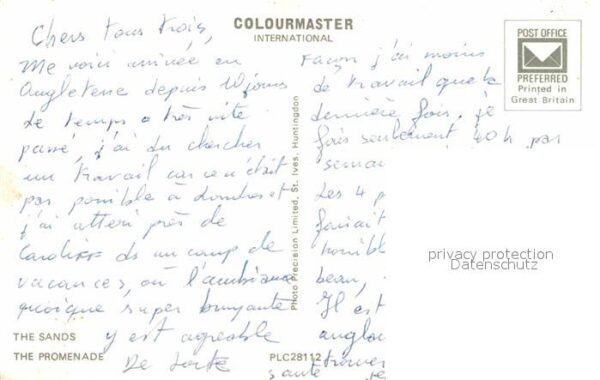 COLOURMASTER
INTERNATIONAL
POST OFFICE
PREFERRED
Printed in
Great Britain
Chers tous trois,
Me voici arrivée en
Angleterre depuis 10 jours
Le temps a très vite
passé, j'ai du chercher
un travail car ce n'était
pas possible à Londres et
j'ai atterri près de
Cardiff ds un camp de
vacances, où l'ambiance
quoique super bruyante
y est agréable
De sorte
Façon j'ai moins
de travail que la
dernière fois, je
fais seulement 40 h par
semai
Les 4 p
faisait
horribl
beau,
Il est
anglai
trouver
santé je
Photo Precision Limited, St. Ives, Huntingdon
THE SANDS
THE PROMENADE
PLC28112
privacy protection
Datenschutz